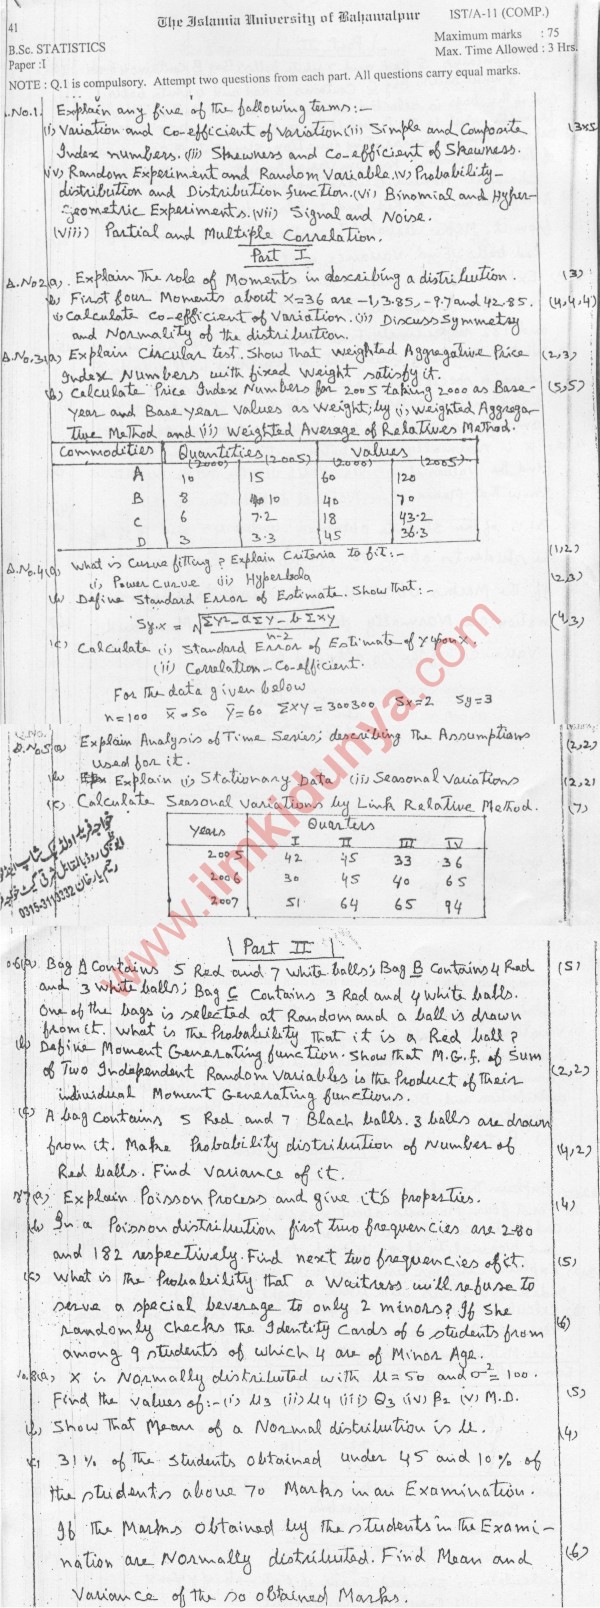 41
The Islamia University of Bahawalpur
IST/A-11 (COMP.)
B.Sc. STATISTICS
Maximum marks : 75
Paper :I
Max. Time Allowed : 3 Hrs.
NOTE : Q.1 is compulsory. Attempt two questions from each part. All questions carry equal marks.
.No.1. Explain any five of the following terms:-
(i) Variation and Co-efficient of Variation (ii) Simple and Composite (3x5
Index numbers. (iii) Skewness and Co-efficient of Skewness.
(iv) Random Experiment and Random Variable. (v) Probability-
distribution and Distribution function. (vi) Binomial and Hyper-
geometric Experiments. (vii) Signal and Noise.
(viii) Partial and Multiple Correlation.
Part I
Q.No2(a). Explain The role of Moments in describing a distribution. (3)
(b) First four Moments about X=36 are -1, 3.85, -9.7 and 42.85. (4,4,4)
(i) Calculate Co-efficient of Variation. (ii) Discuss Symmetry
and Normality of the distribution.
Q.No.3(a) Explain Circular test. Show That Weighted Aggregative Price (2,3)
Index Numbers with fixed Weight satisfy it.
(b) Calculate Price Index Numbers for 2005 taking 2000 as Base- (5,5)
Year and Base year Values as Weight; by (i) Weighted Aggrega-
tive Method and (ii) Weighted Average of Relatives Method.
Commodities Quantities Values
(2000) (2005) (2000) (2005)
A 10 15 60 120
B 8 10 40 70
C 6 7.2 18 43.2
D 3 3.3 45 36.3
Q.No.4(a) What is Curve fitting? Explain Criteria to fit:- (1,2)
(i) Power Curve (ii) Hyperbola
(b) Define Standard Error of Estimate. Show that:- (2,3)
Sy.x = √ΣY²-aΣY-bΣXY
n-2
(4,3)
(c) Calculate (i) Standard Error of Estimate of Y upon X.
(ii) Correlation-Co-efficient.
For the data given below
n=100 X̄=50 Ȳ=60 ΣXY=300300 Sx=2 Sy=3
Q.No.5(a) Explain Analysis of Time Series; describing the Assumptions (2,2)
used for it.
(b) Explain (i) Stationary Data (ii) Seasonal Variations (2,2)
(c) Calculate Seasonal Variations by Link Relative Method. (7)
Years Quarters
I II III IV
2005 42 45 33 36
2006 30 45 40 65
2007 51 64 65 94
0315-3119332
www.ilmkidunya.com
Part II
.6(a) Bag A Contains 5 Red and 7 White balls; Bag B Contains 4 Red (5)
and 3 White balls; Bag C Contains 3 Red and 4 White balls.
One of the bags is selected at Random and a ball is drawn
from it. What is the Probability That it is a Red ball?
(b) Define Moment Generating function. Show that M.G.f. of Sum
of Two Independent Random Variables is the Product of their (2,2)
individual Moment Generating functions.
(c) A bag Contains 5 Red and 7 Black balls. 3 balls are drawn
from it. Make Probability distribution of Number of (4,2)
Red balls. Find Variance of it.
7(a) Explain Poisson Process and give it's properties. (4)
(b) In a Poisson distribution first two frequencies are 280
and 182 respectively. Find next two frequencies of it. (5)
(c) What is the Probability that a Waitress will refuse to
serve a special beverage to only 2 minors? If She
randomly Checks the Identity Cards of 6 students from (6)
among 9 students of which 4 are of Minor Age.
.8(a) X is Normally distributed with μ=50 and σ²=100.
Find the values of:- (i) μ3 (ii) μ4 (iii) Q3 (iv) β2 (v) M.D. (5)
(b) Show That Mean of a Normal distribution is μ. (4)
(c) 31% of the Students obtained under 45 and 10% of
the students above 70 Marks in an Examination.
If the Marks obtained by the students in the Exami-
nation are Normally distributed. Find Mean and (6)
Variance of the so obtained Marks.